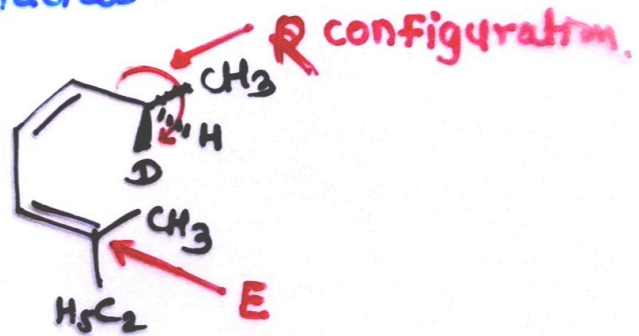 R configuration.
CH3
H
D
CH3
E
H5C2